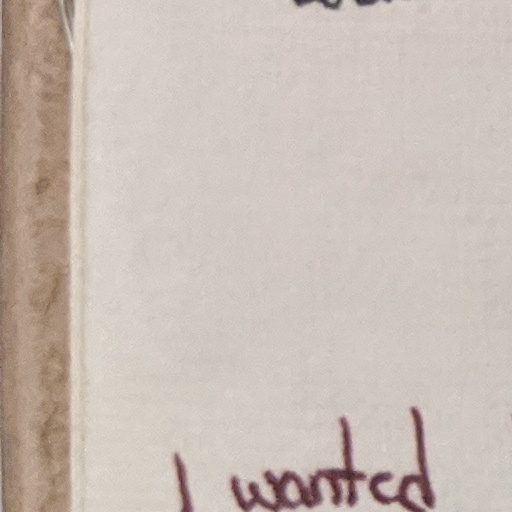 I wanted